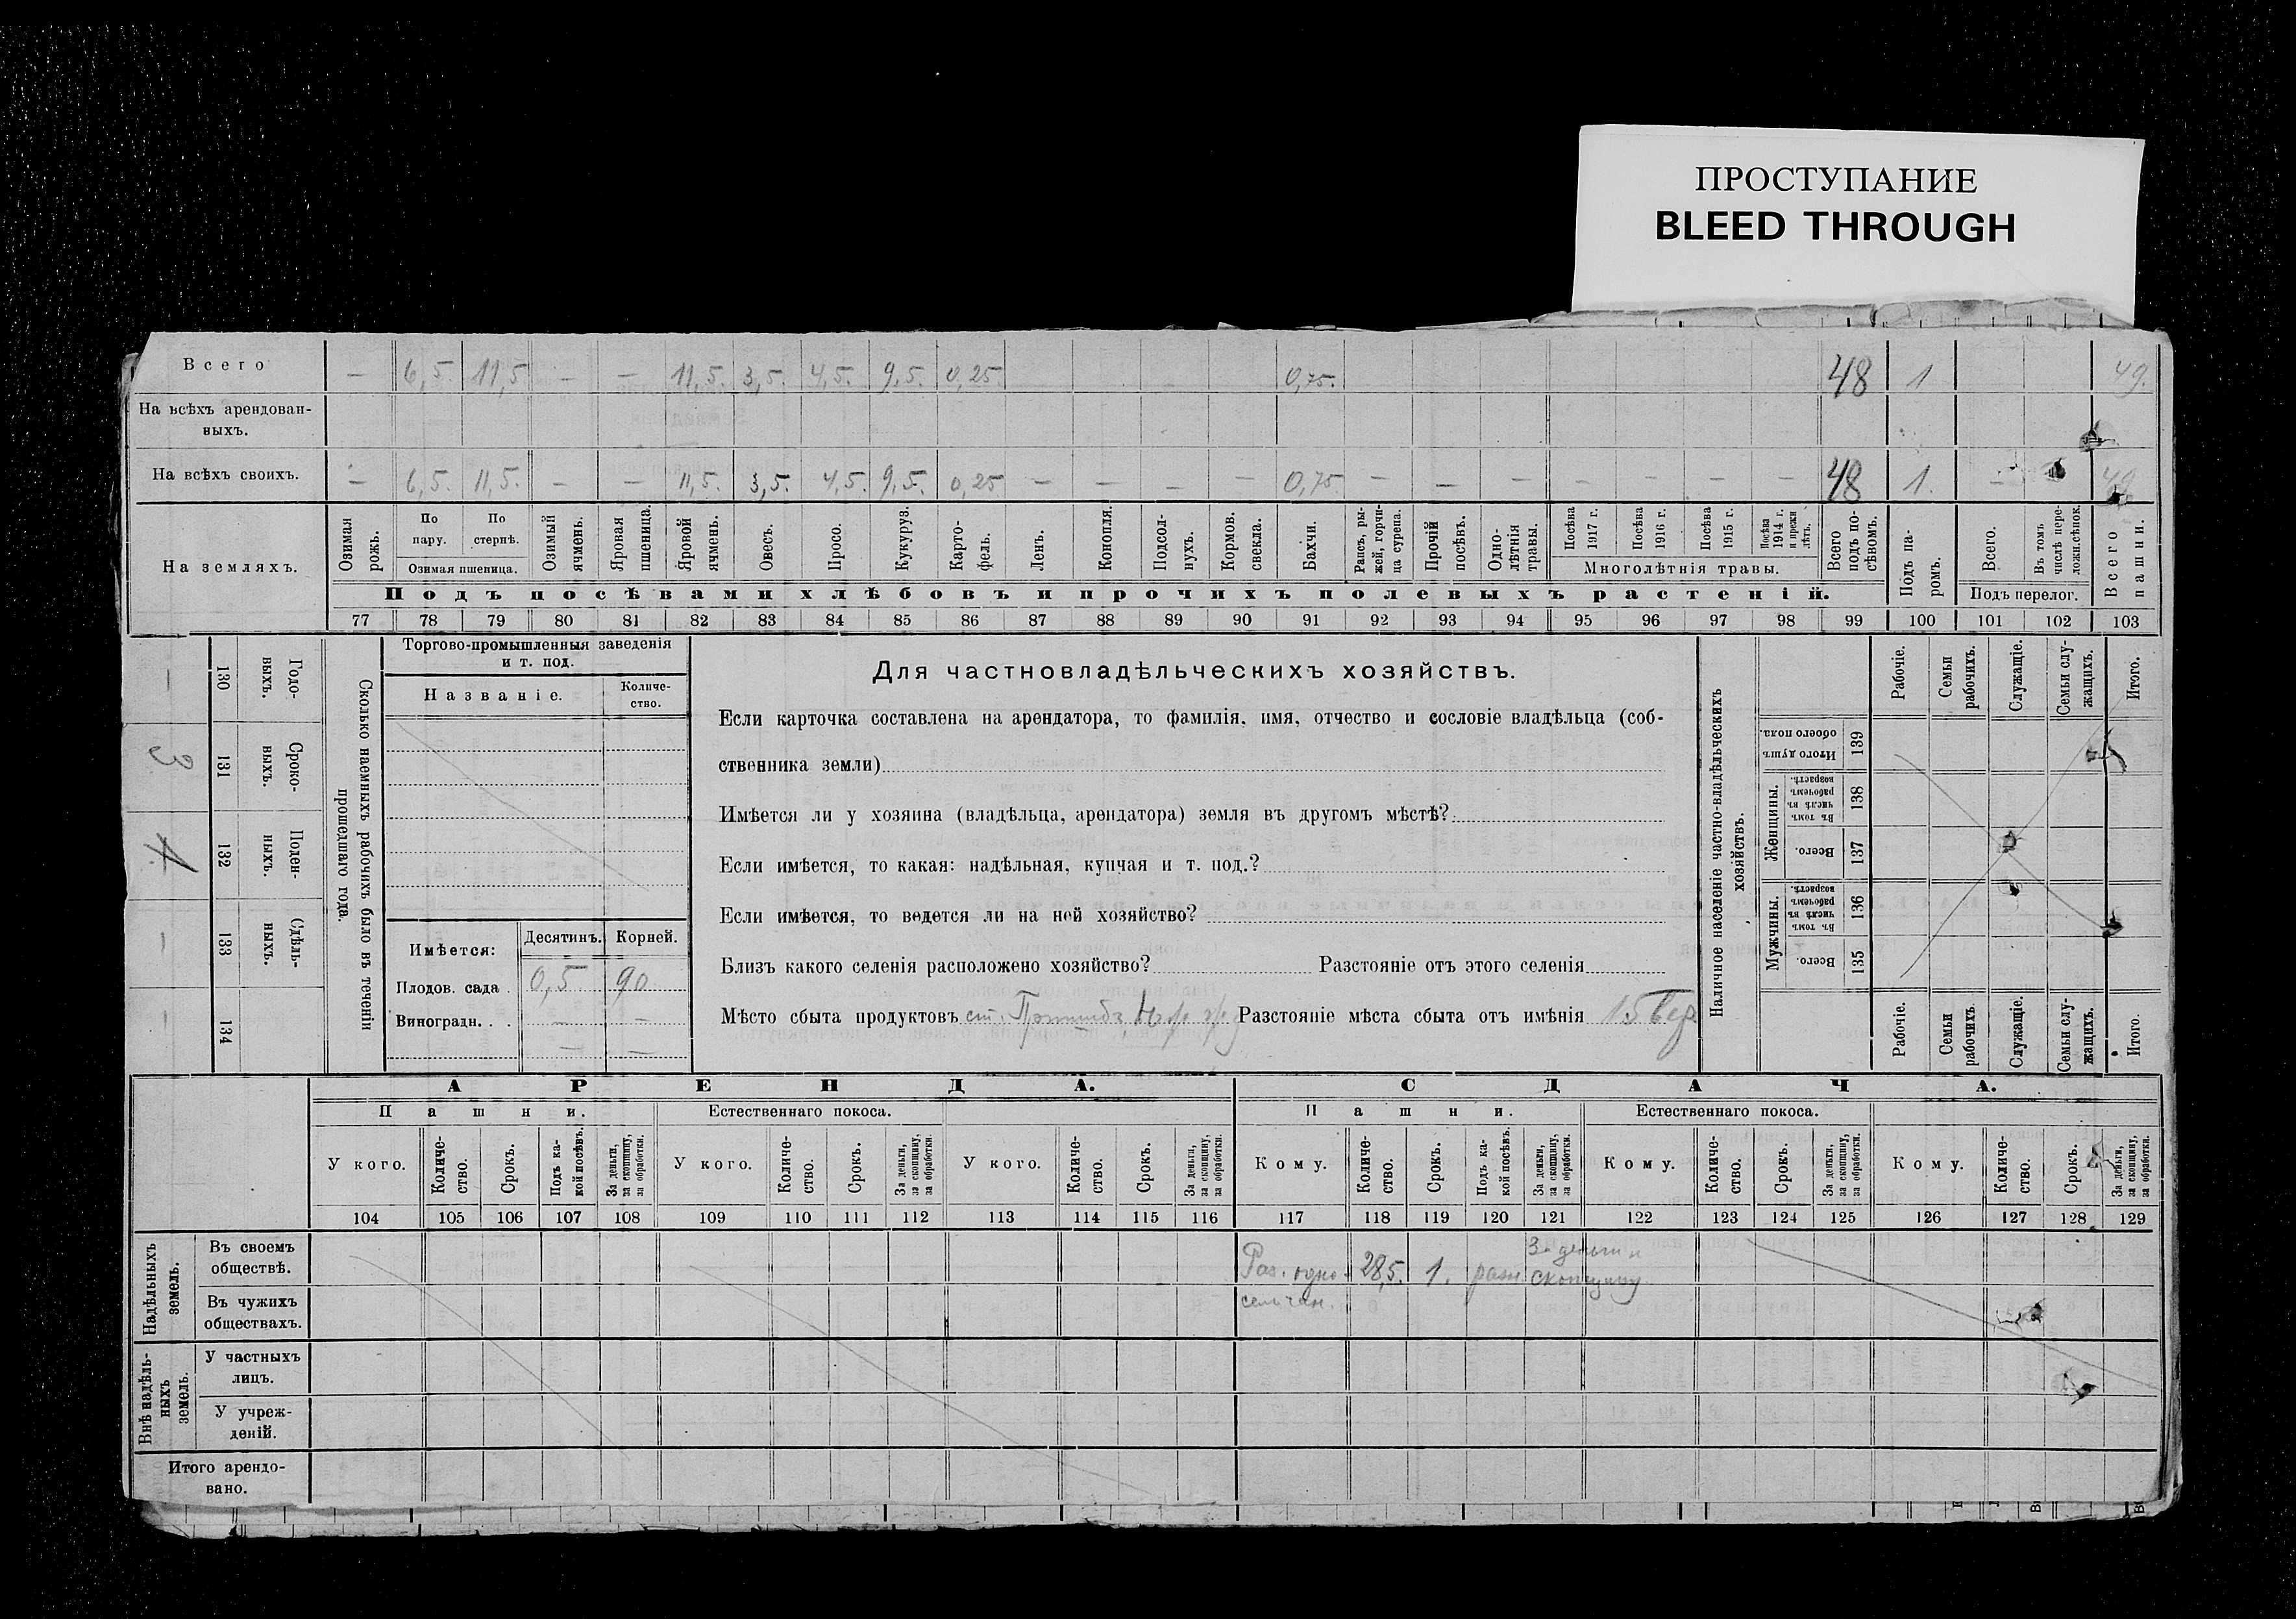 ПРОСТУПАНИЕ
BLEED THROUGH
Всего — 6,5. 11,5 — — 11,5. 3,5. 4,5. 9,5. 0,25 0,75. 48 1 49.
На всѣхъ арендован-
ныхъ.
На всѣхъ своихъ. — 6,5. 11,5. — — 11,5. 3,5. 4,5. 9,5. 0,25 — — — — 0,75 — — — — — — — 48 1.
На земляхъ.
Озимая рожь.
По пару.
По стернѣ.
Озимая пшеница.
Озимый ячмень.
Яровая пшеница.
Яровой ячмень.
Овесъ.
Просо.
Кукуруз.
Карто-
фель.
Ленъ.
Конопля.
Подсол-
нухъ.
Кормов. свекла.
Бахчи.
Рапсъ, ры-
жей, горчи-
ца сурепа.
Прочій посѣвъ.
Одно-
лѣтнія травы.
Посѣва 1917 г.
Посѣва 1916 г.
Посѣва 1915 г.
Посѣва 1914 г. и прежн лѣтъ.
Многолѣтнія травы.
Всего подъ по-
сѣвомъ.
Подъ па-
ромъ.
Всего.
Въ томъ числѣ пере-
ложн.сѣнок.
Подъ перелог.
Всего пашни.
Подъ посѣвами хлѣбовъ и прочихъ полевыхъ растеній.
77 78 79 80 81 82 83 84 85 86 87 88 89 90 91 92 93 94 95 96 97 98 99 100 101 102 103
Сколько наемныхъ рабочихъ было въ теченіи
прошедшаго года.
Годо-
выхъ.
130
—
Сроко-
выхъ.
131
3
Поден-
ныхъ.
132
Сдѣль-
ныхъ.
133
—
134
—
Торгово-промышленныя заведенія
и т. под.
Названіе.
Количе-
ство.
Имѣется:
Десятинъ. Корней.
Плодов. сада . 0,5 90
Виноградн. . . — —
— —
Для частновладѣльческихъ хозяйствъ.
Если карточка составлена на арендатора, то фамилія, имя, отчество и сословіе владѣльца (соб-
ственника земли)
Имѣется ли у хозяина (владѣльца, арендатора) земля въ другомъ мѣстѣ?
Если имѣется, то какая: надѣльная, купчая и т. под.?
Если имѣется, то ведется ли на ней хозяйство?
Близъ какого селенія расположено хозяйство? Разстояніе отъ этого селенія
Мѣсто сбыта продуктовъ ст. Разстояніе мѣста сбыта отъ имѣнія 15 вер
Наличное населеніе частно-владѣльческихъ
хозяйствъ.
Рабочіе.
Семьи рабочихъ.
Служащіе.
Семьи слу-
жащихъ.
Итого.
Итого душъ обоего пола.
139
Женщины.
Въ томъ числѣ въ рабочемъ возрастѣ.
138
Всего.
137
Мужчины.
Въ томъ числѣ въ рабочемъ возрастѣ.
136
Всего.
135
Рабочіе.
Семьи рабочихъ
Служащіе.
Семьи слу-
жащихъ.
Итого.
АРЕНДА. СДАЧА.
Пашни. Естественнаго покоса. Пашни. Естественнаго покоса.
У кого.
Количе-
ство.
Срокъ.
Подъ ка-
кой посѣвъ.
За деньги, за скопщину, за обработки.
У кого.
Количе-
ство.
Срокъ.
За деньги, за скопщину, за обработки.
У кого.
Количе-
ство.
Срокъ.
За деньги, за скопщину, за обработки.
Кому.
Количе-
ство.
Срокъ.
Подъ ка-
кой посѣвъ.
За деньги, за скопщину, за обработки.
Кому.
Количе-
ство.
Срокъ.
За деньги, за скопщину, за обработки.
Кому.
Количе-
ство.
Срокъ.
За деньги, за скопщину, за обработки.
104 105 106 107 108 109 110 111 112 113 114 115 116 117 118 119 120 121 122 123 124 125 126 127 128 129
Надѣльныхъ
земель.
Въ своемъ
обществѣ.
Раз. одно- 28,5. 1. разн За деньги и
скопщину
сельчан.
Въ чужихъ
обществахъ.
Внѣ надѣль-
ныхъ
земель.
У частныхъ
лицъ.
У учреж-
деній.
Итого арендо-
вано.